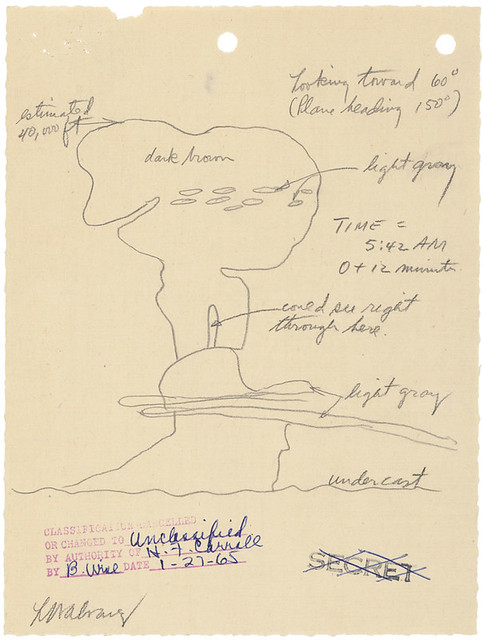 Looking toward 60°
(Plane heading 150°)
estimated
40,000 ft
dark brown
light gray
TIME =
5:42 AM
0 + 12 minutes
could see right
through here.
light gray
undercast
CLASSIFICATION CANCELLED
OR CHANGED TO Unclassified
BY AUTHORITY OF H. F. Carroll
BY B. Wise DATE 1-27-65
SECRET